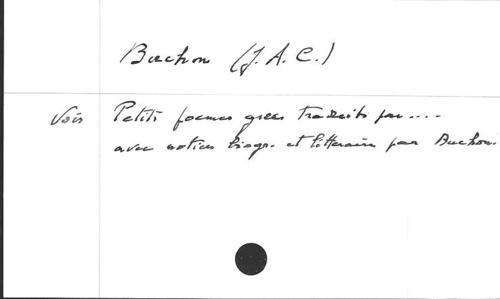 Buchon (J. A. C.)
Voir Petits poemes grecs traduits par....
avec notices biogr. et litteraire par Buchon.